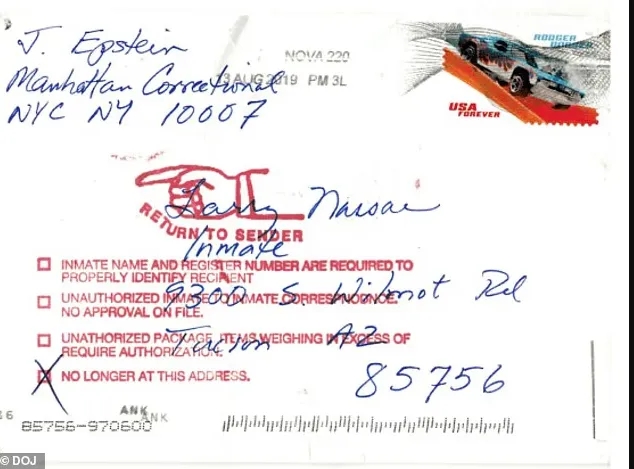 J. Epstein
Manhattan Correctional
NYC NY 10007
NOVA 220
13 AUG 2019 PM 3L
RODGER DODGER
USA
FOREVER
RETURN TO SENDER
Larry Nassar
Inmate
9300 S Wilmot Rd
Tucson AZ
85756
INMATE NAME AND REGISTER NUMBER ARE REQUIRED TO
PROPERLY IDENTIFY RECIPIENT
UNAUTHORIZED INMATE TO INMATE CORRESPONDENCE.
NO APPROVAL ON FILE.
UNATHORIZED PACKAGE, ITEMS WEIGHING IN EXCESS OF
REQUIRE AUTHORIZATION.
X NO LONGER AT THIS ADDRESS.
ANK
ANK
16
85756-970600
© DOJ